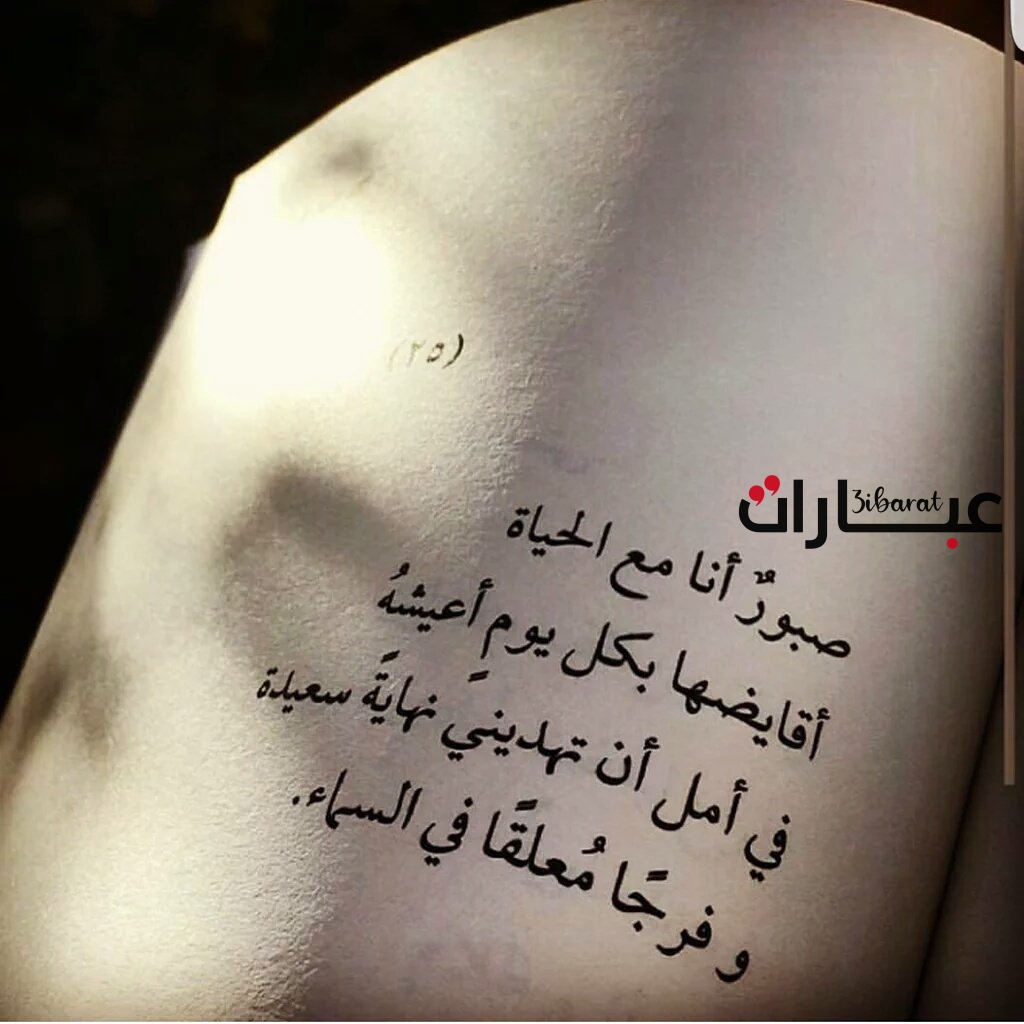 (٢٥)
عبارات
3ibarat
صبورٌ أنا مع الحياة
أقايضها بكل يومٍ أعيشهُ
في أمل أن تهديني نهايةً سعيدة
و فرجًا مُعلقًا في السماء.